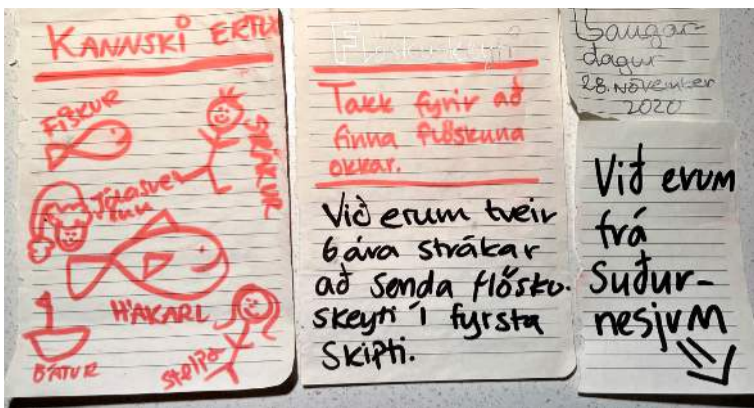 KANNSKI ERTU
FISKUR
STRÁKUR
Jólasvei
nn
HÁKARL
BÁTUR
Stelpa
Flöskuskeyti
Takk fyrir að
finna flöskuna
okkar.
Við erum tveir
6 ára strákar
að senda flösku-
skeyti í fyrsta
skipti.
Laugar-
dagur
28. nóvember
2020
Við erum
frá
Suður-
nesjum